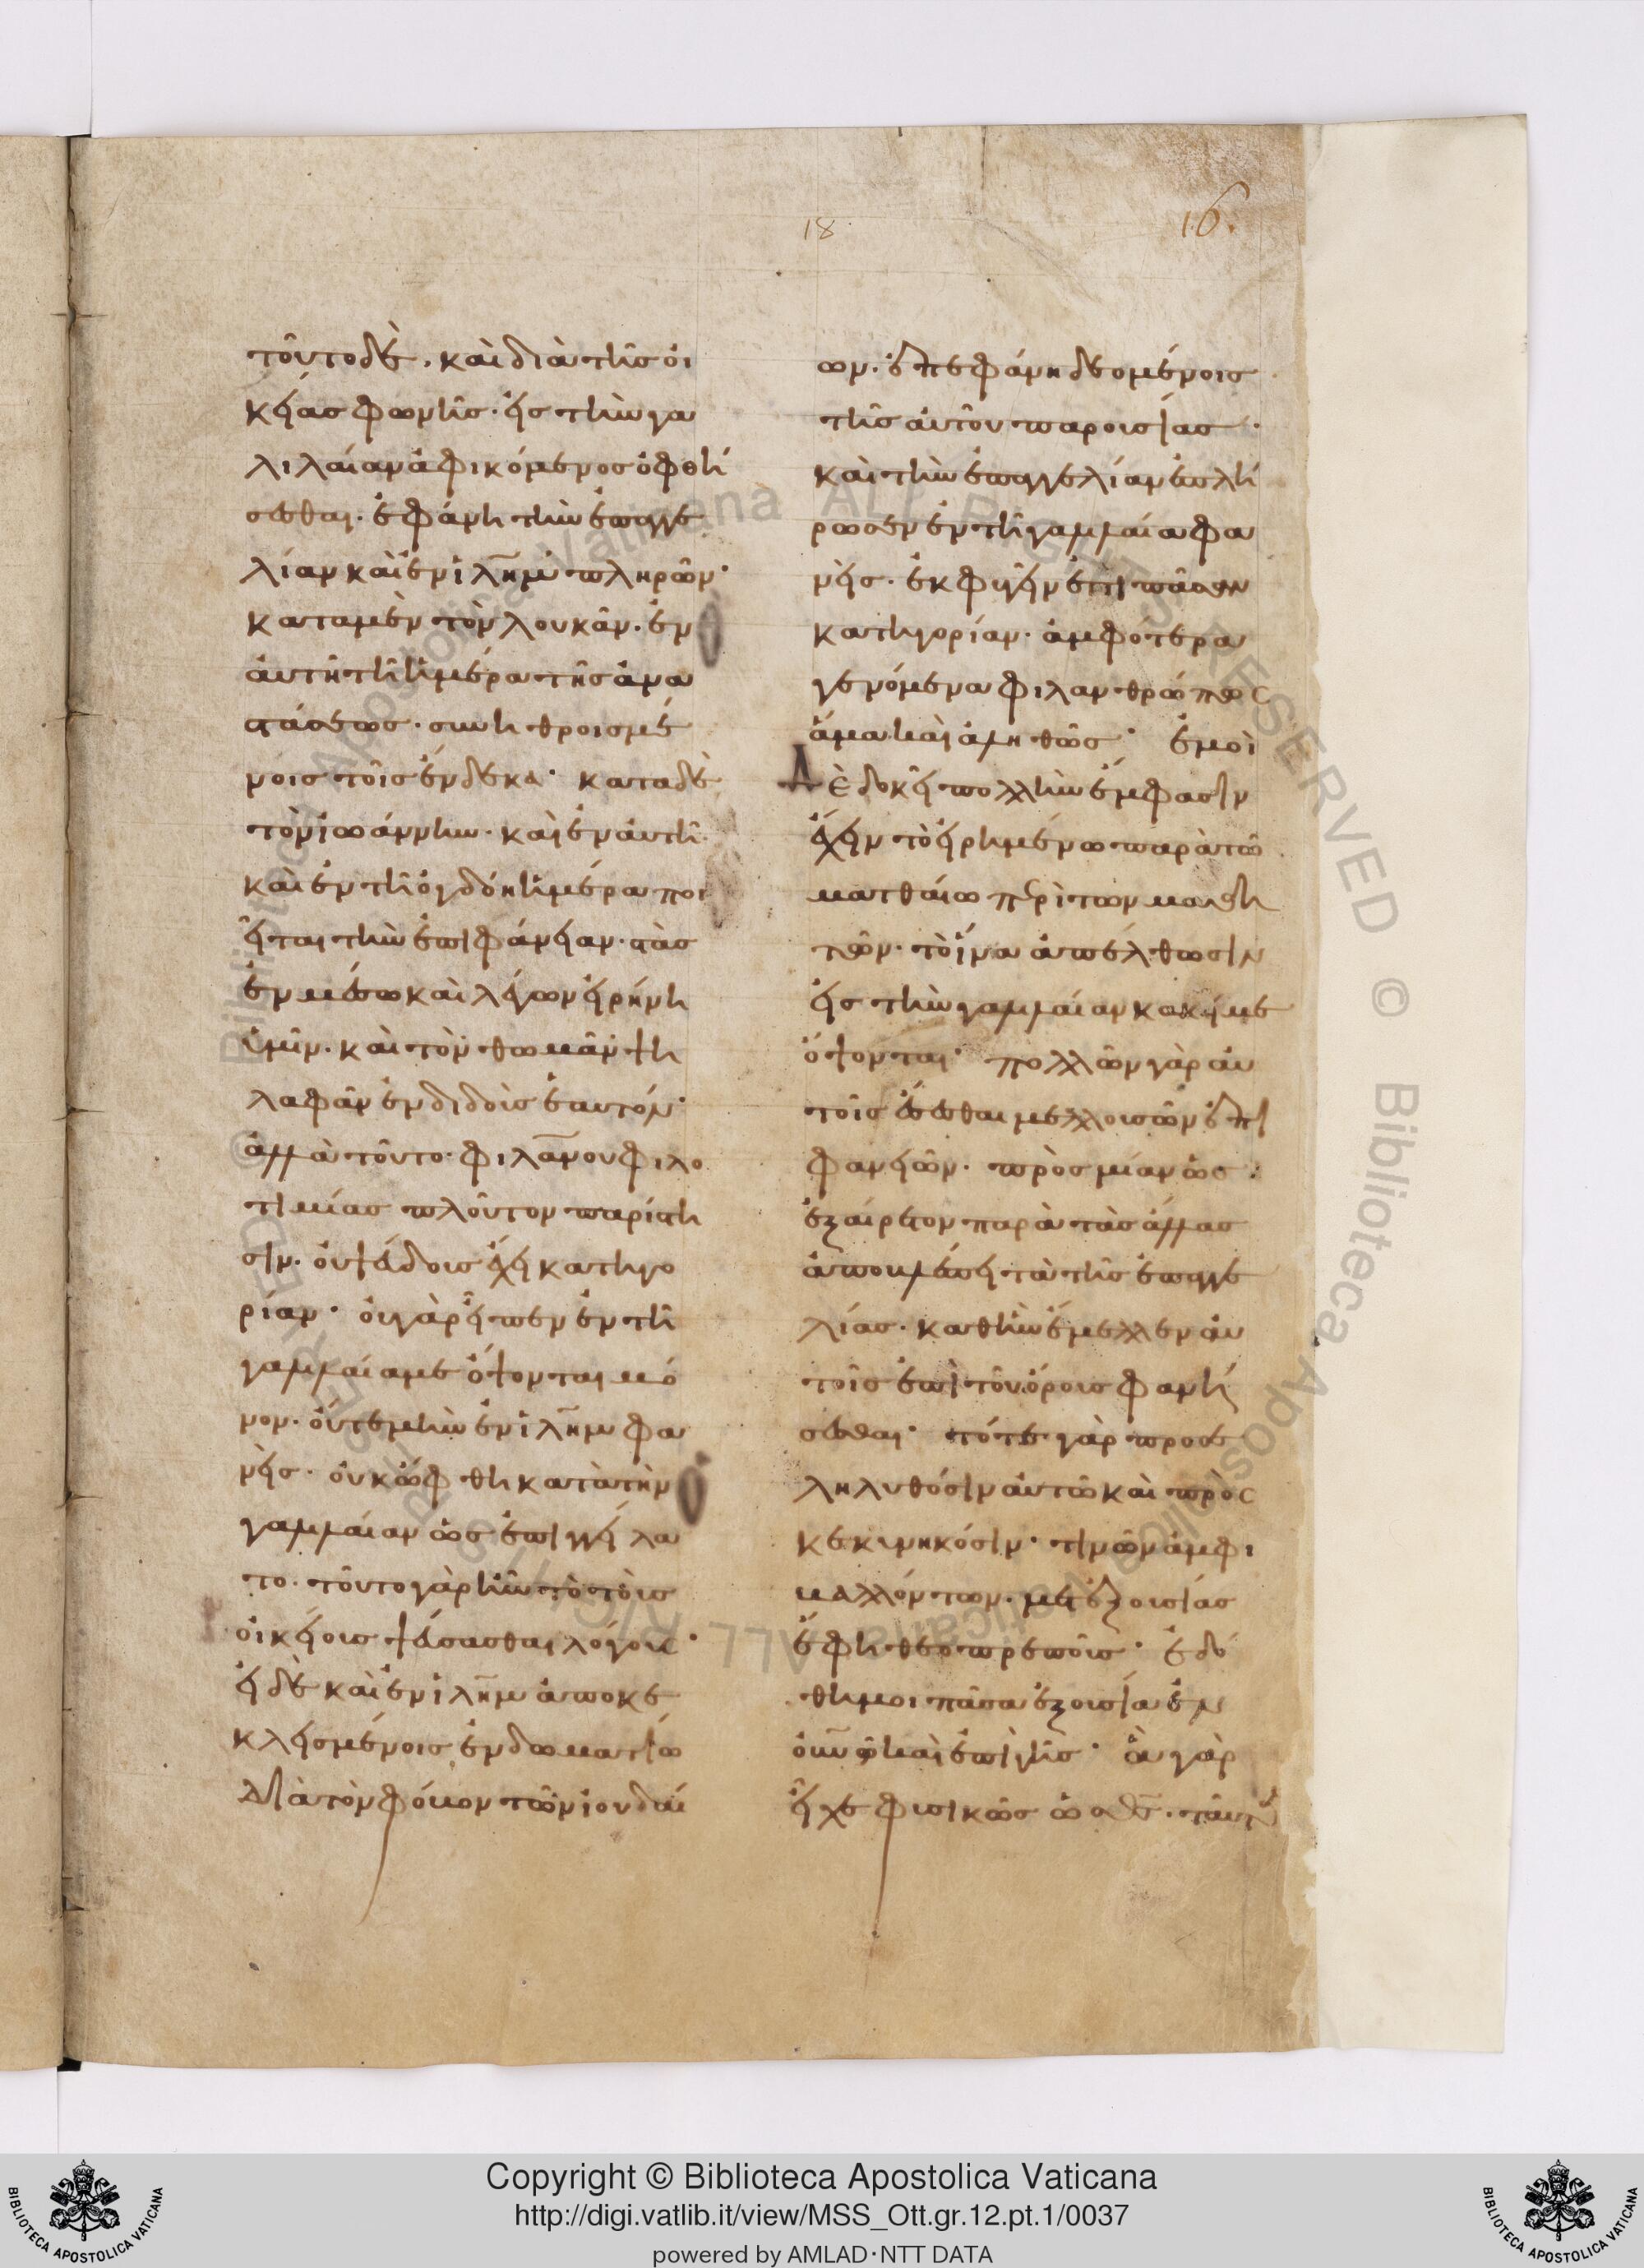 18
16.
τοῦτο δὲ, καὶ διὰ τῆς οἰ
κείας φωνῆς· εἰς τὴν γα
λιλαίαν ἀφικόμενος ὀφθή
σεσθαι· ἐφάνη τὴν ἐπαγγε
λίαν καὶ ἐν ἰλῆμ πληρῶν·
κατα μὲν τὸν λουκᾶν· ἐν
αὐτῆ τῆ ἡμέρα τῆς ἀνα
στάσεως· συνηθροισμέ
νοις τοῖς ἕνδεκα· κατα δὲ
τὸν ἰωάννην· καὶ ἐν αὐτῆ
καὶ ἐν τῆ ὀγδόη ἡμέρα ποι
εῖται τὴν ἐπιφάνειαν· στὰς
ἐν μέσω καὶ λέγων εἰρήνη
ὑμῖν· καὶ τὸν θωμᾶν ψη
λαφᾶν ἐνδιδοὺς ἑαυτόν·
ἀλλὰ τοῦτο· φιλανου φιλο
τιμίας πλοῦτον παρίστη
σιν· οὐ ψεύδους ἔχει κατηγο
ρίαν· οὐ γὰρ εἶπεν ἐν τῆ
γαλιλαία με ὄψονται μό
νον· οὔτε μὴν ἐν ἰλῆμ φα
νεὶς· οὐκ ὤφθη κατὰ τὴν
γαλιλαίαν ὡς ἐπηγγείλα
το· τοῦτο γὰρ ἦν τὸ τοῖς
οἰκείοις ψεύσασθαι λόγοις·
εἰ δὲ καὶ ἐν ἰλῆμ ἀποκε
κλεισμένοις ἐν δωματίω
διὰ τὸν φόβον τῶν ἰουδαί
ων· ἐπεφάνη δεομένοις
τῆς αὐτοῦ παρουσίας·
καὶ τὴν ἐπαγγελίαν ἐπλή
ρωσεν ἐν τῆ γαλιλαία φα
νεὶς· ἐκφυγεῖν ἐστι πᾶσαν
κατηγορίαν· ἀμφότερα
γενόμενα φιλανθρώπως
ἅμα καὶ ἀληθῶς· ἐμοὶ
Δὲ δοκεῖ πολλὴν ἔμφασιν
ἔχειν τὸ εἰρημένον παρὰ τῶ
ματθαίω περὶ τῶν μαθη
τῶν· τὸ ἵνα ἀπέλθωσιν
εἰς τὴν γαλιλαίαν κακεῖ με
ὄψονται· πολλῶν γὰρ αὐ
τοῖς ἔσεσθαι μελλουσῶν ἐπι
φανειῶν· πρὸς μίαν ὡς
ἐξαίρετον παρὰ τὰς ἄλλας
ἀποβλέπει τὰ τῆς ἐπαγγε
λίας· καθ ἣν ἔμελλεν αὐ
τοῖς ἐπὶ τοῦ ὄρους φανή
σεσθαι· τότε γὰρ προσε
ληλυθόσιν αὐτῶ καὶ προς
κεκυνηκόσιν· τινῶν ἀμφι
βαλλόντων· μετ ἐξουσίας
ἔφη θεοπρεποῦς· ἐδό
θη μοι πᾶσα ἐξουσία ἐν
οὐνῶ καὶ ἐπὶ γῆς· ἃ γὰρ
εἶχε φυσικῶς ὡς θς· ταῦτ
Copyright © Biblioteca Apostolica Vaticana
http://digi.vatlib.it/view/MSS_Ott.gr.12.pt.1/0037
powered by AMLAD · NTT DATA
BIBLIOTECA APOSTOLICA VATICANA
BIBLIOTECA APOSTOLICA VATICANA